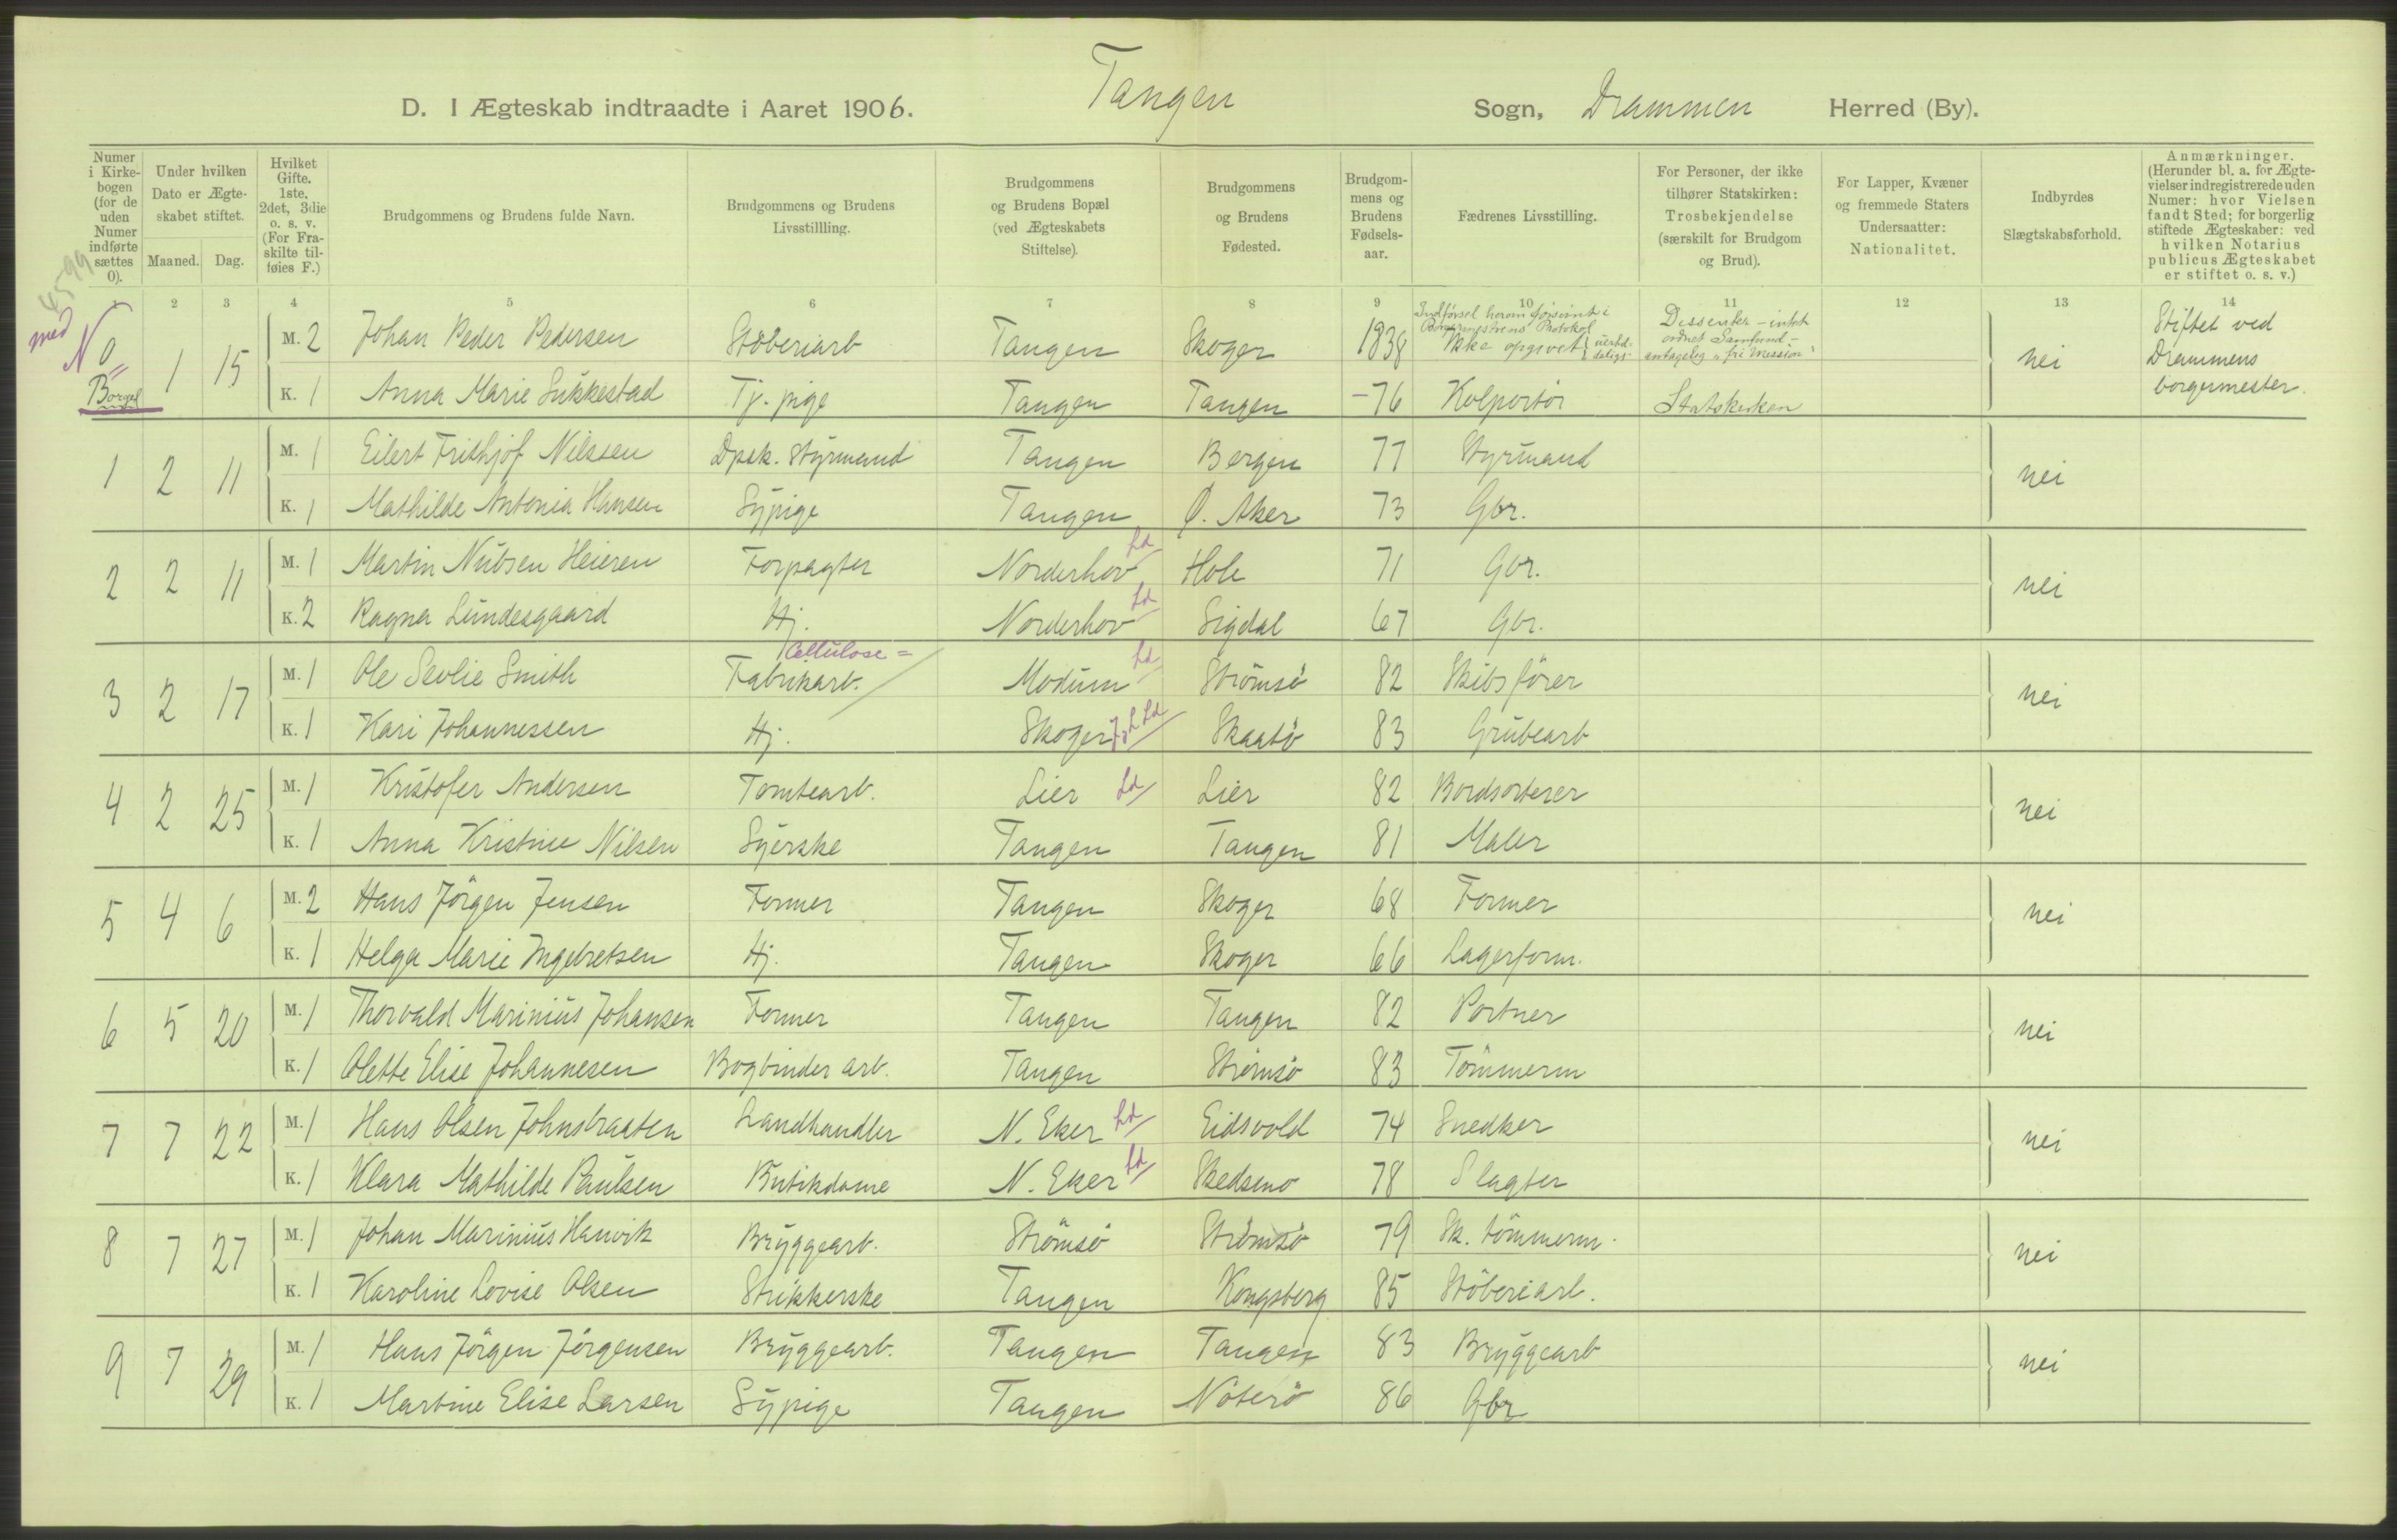 Tangen
D. I Ægteskab indtraadte i Aaret 1906. Sogn, Drammen Herred (By).
Numer i Kirkebogen (for de uden Numer indførte sættes 0).
Under hvilken Dato er Ægteskabet stiftet.
Maaned. Dag.
Hvilket Gifte. 1ste, 2det, 3die o. s. v. (For Fraskilte tilføies F.)
Brudgommens og Brudens fulde Navn.
Brudgommens og Brudens Livsstillling.
Brudgommens og Brudens Bopæl (ved Ægteskabets Stiftelse).
Brudgommens og Brudens Fødested.
Brudgommens og Brudens Fødselsaar.
Fædrenes Livsstilling.
For Personer, der ikke tilhører Statskirken: Trosbekjendelse (særskilt for Brudgom og Brud).
For Lapper, Kvæner og fremmede Staters Undersaatter: Nationalitet.
Indbyrdes Slægtskabsforhold.
Anmærkninger. (Herunder bl. a. for Ægtevielser indregistrerede uden Numer: hvor Vielsen fandt Sted; for borgerlig stiftede Ægteskaber: ved hvilken Notarius publicus Ægteskabet er stiftet o. s. v.)
1 2 3 4 5 6 7 8 9 10 11 12 13 14
4599
med
N 0 1 15 M. 2 Johan Peder Pedersen Støberiarb Tangen Skoger 1838 Ikke opgivet Dissenter nei Stiftet ved Drammens borgermester.
Borgel K. 1 Anna Marie Lukkestad Tj. pige Tangen Tangen -76 Kolportör Statskirken
1 2 11 M. 1 Eilert Frithjof Nilssen Dpsk. Styrmand Tangen Bergen 77 Styrmand nei
K. 1 Mathilde Antonia Hansen Sypige Tangen Ø. Aker 73 Gbr.
2 2 11 M. 1 Martin Nubsen Heieren Forpagter Norderhov Ld Hole 71 Gbr. nei
K. 2 Ragna Lundesgaard Hj. Norderhov Ld Sigdal 67 Gbr.
3 2 17 M. 1 Ole Sevlie Smith Cellulose= Fabrikarb. Modum Ld Strömsö 82 Skibsförer nei
K. 1 Kari Johannessen Hj. Skoger Ld Skaatö 83 Grubearb
4 2 25 M. 1 Kristofer Andersen Tomtearb. Lier Ld Lier 82 Bordsorterer nei
K. 1 Anna Kristine Nilsen Syerske Tangen Tangen 81 Maler
5 4 6 M. 2 Hans Jörgen Jensen Former Tangen Skoger 68 Former nei
K. 1 Helga Marie Ingebretsen Hj. Tangen Skoger 66 Lagerform.
6 5 20 M. 1 Thorvald Marinius Johansen Former Tangen Tangen 82 Portner nei
K. 1 Olette Elise Johannesen Bogbinder arb. Tangen Strömsö 83 Tömmerm
7 7 22 M. 1 Hans Olsen Johnsbraaten Landhandler N. Eker Ld Eidsvold 74 Snedker nei
K. 1 Klara Mathilde Paulsen Butikdame N. Eker Ld Skedsmo 78 Slagter
8 7 27 M. 1 Johan Marinius Hanvik Bryggearb. Strömsö Strömsö 79 Sk. tömmerm. nei
K. 1 Karoline Lovise Olsen Strikkerske Tangen Kongsberg 85 Stöberiarb.
9 7 29 M. 1 Hans Jörgen Jörgensen Bryggearb. Tangen Tangen 83 Bryggearb nei
K. 1 Martine Elise Larsen Sypige Tangen Nöterö 86 Gbr